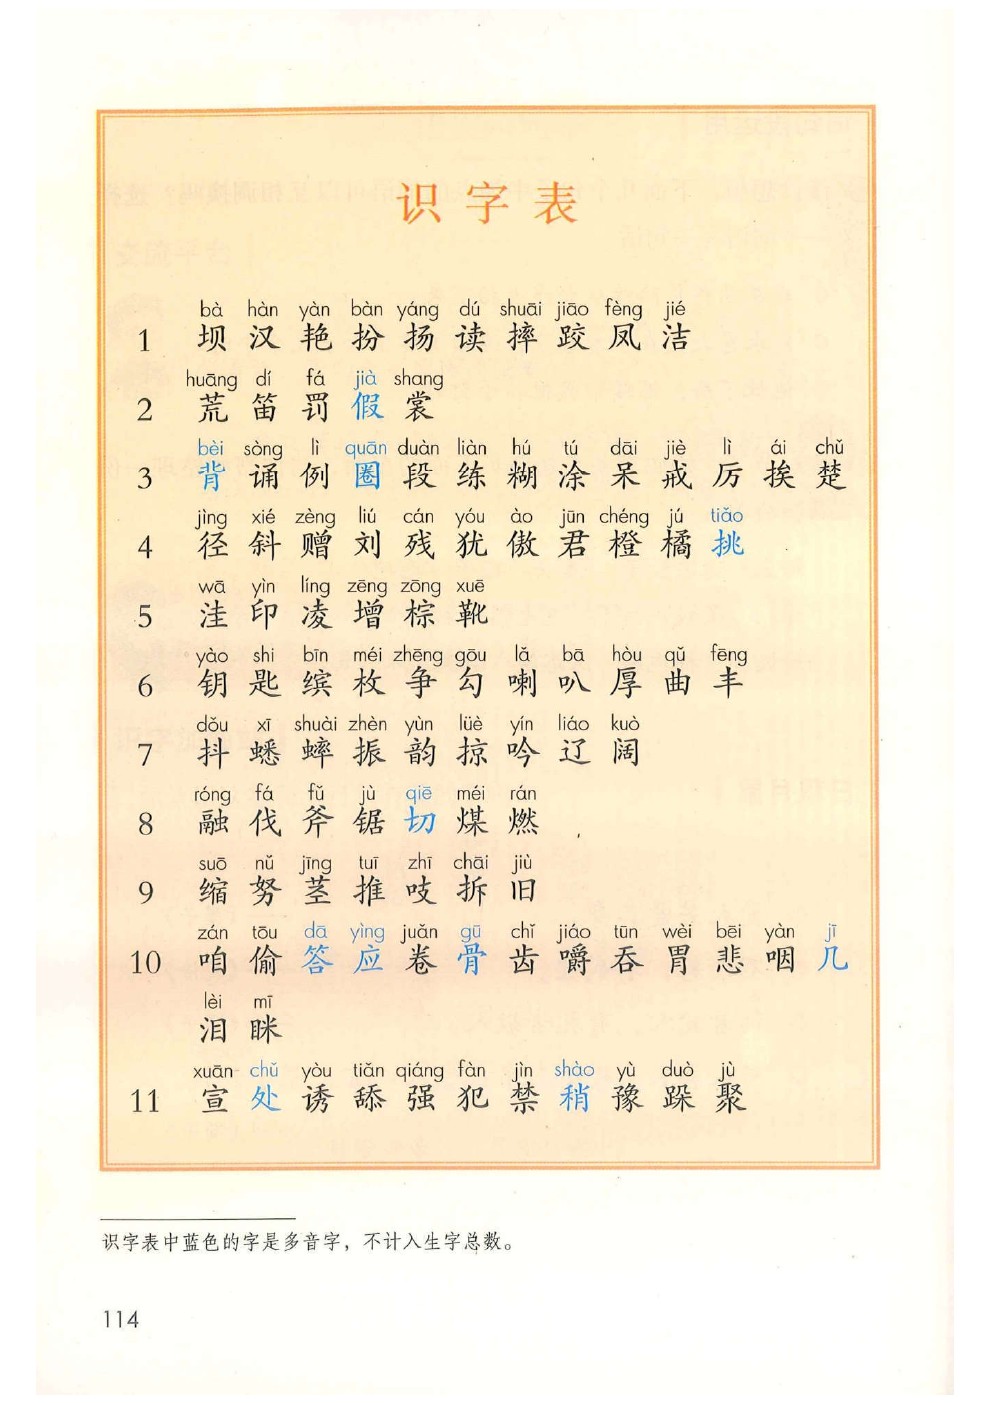 识字表
bà hàn yàn bàn yáng dú shuāi jiāo fèng jié
1 坝 汉 艳 扮 扬 读 摔 跤 凤 洁
huāng dí fá jià shang
2 荒 笛 罚 假 裳
bèi sòng lì quān duàn liàn hú tú dāi jiè lì ái chǔ
3 背 诵 例 圈 段 练 糊 涂 呆 戒 厉 挨 楚
jìng xié zèng liú cán yóu ào jūn chéng jú tiǎo
4 径 斜 赠 刘 残 犹 傲 君 橙 橘 挑
wā yìn líng zēng zōng xuē
5 洼 印 凌 增 棕 靴
yào shi bīn méi zhēng gōu lǎ bā hòu qǔ fēng
6 钥 匙 缤 枚 争 勾 喇 叭 厚 曲 丰
dǒu xī shuài zhèn yùn lüè yín liáo kuò
7 抖 蟋 蟀 振 韵 掠 吟 辽 阔
róng fá fǔ jù qiē méi rán
8 融 伐 斧 锯 切 煤 燃
suō nǔ jīng tuī zhī chāi jiù
9 缩 努 茎 推 吱 拆 旧
zán tōu dā yìng juǎn gū chǐ jiáo tūn wèi bēi yàn jī
10 咱 偷 答 应 卷 骨 齿 嚼 吞 胃 悲 咽 几
lèi mī
泪 眯
xuān chǔ yòu tiǎn qiáng fàn jìn shào yù duò jù
11 宣 处 诱 舔 强 犯 禁 稍 豫 跺 聚
识字表中蓝色的字是多音字，不计入生字总数。
114